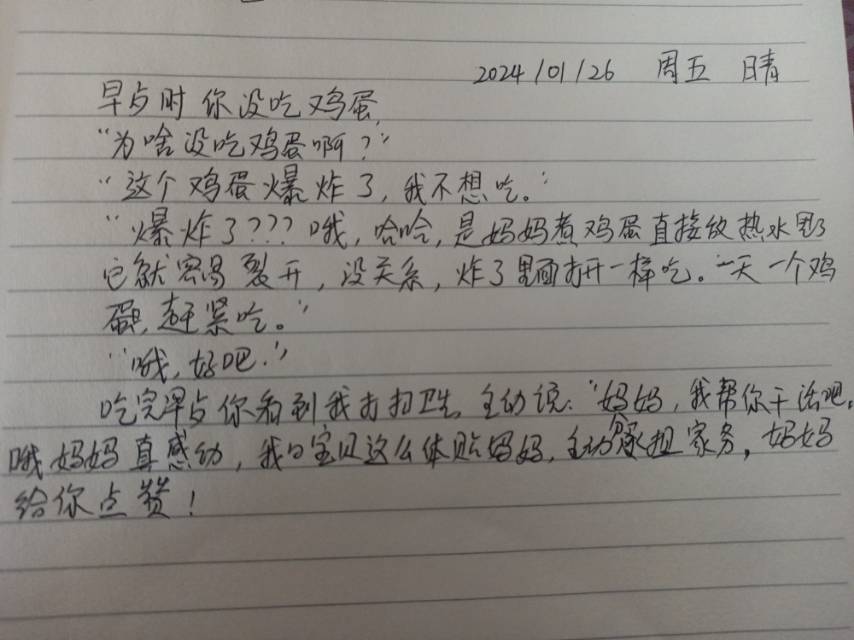 2024/01/26 周五 晴
早点时你没吃鸡蛋,
“为啥没吃鸡蛋啊？”
“这个鸡蛋爆炸了，我不想吃。”
“爆炸了???哦，哈哈，是妈妈煮鸡蛋直接放热水里了
它就容易裂开，没关系，炸了里面打开一样吃。一天一个鸡
蛋，赶紧吃。”
“哦，好吧。”
吃完早点你看到我打扫卫生，主动说：“妈妈，我帮你干活吧。
哦妈妈真感动，我的宝贝这么体贴妈妈，主动承担家务，妈妈
给你点赞！